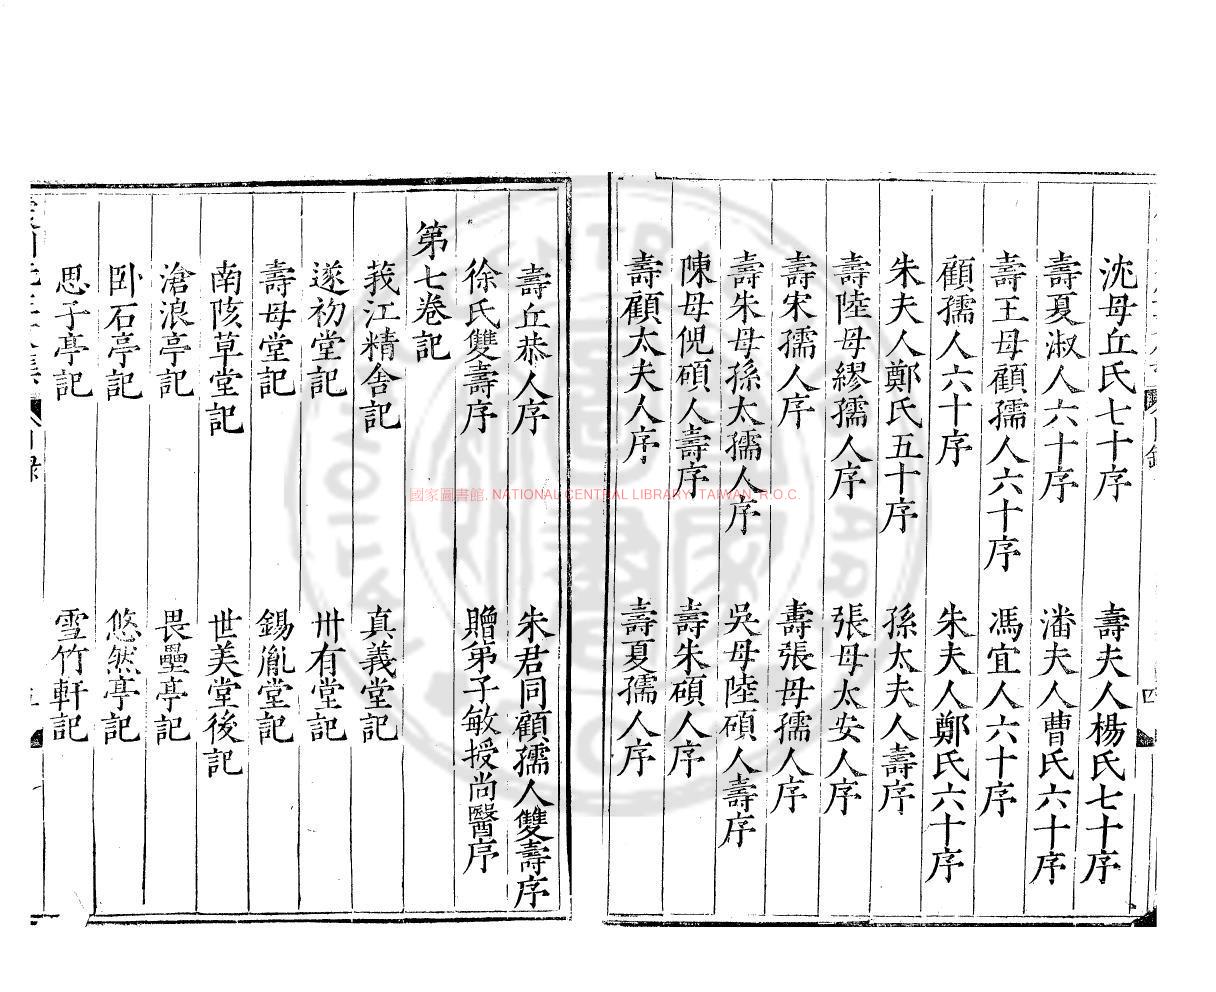 沈母丘氏七十序 壽夫人楊氏七十序
壽夏淑人六十序 潘夫人曹氏六十序
壽王母顧孺人六十序 馮宜人六十序
顧孺人六十序 朱夫人鄭氏六十序
朱夫人鄭氏五十序 孫太夫人壽序
壽陸母繆孺人序 張母太安人序
壽宋孺人序 壽張母孺人序
壽朱母孫太孺人序 吳母陸碩人壽序
陳母倪碩人壽序 壽朱碩人序
壽顧太夫人序 壽夏孺人序
四
壽丘恭人序 朱君同顧孺人雙壽序
徐氏雙壽序 贈弟子敏授尚醫序
第七卷記
莪江精舍記 真義堂記
遂初堂記 卅有堂記
壽母堂記 錫胤堂記
南陔草堂記 世美堂後記
滄浪亭記 畏壘亭記
卧石亭記 悠然亭記
思子亭記 雪竹軒記
國家圖書館, NATIONAL CENTRAL LIBRARY, TAIWAN, R.O.C.